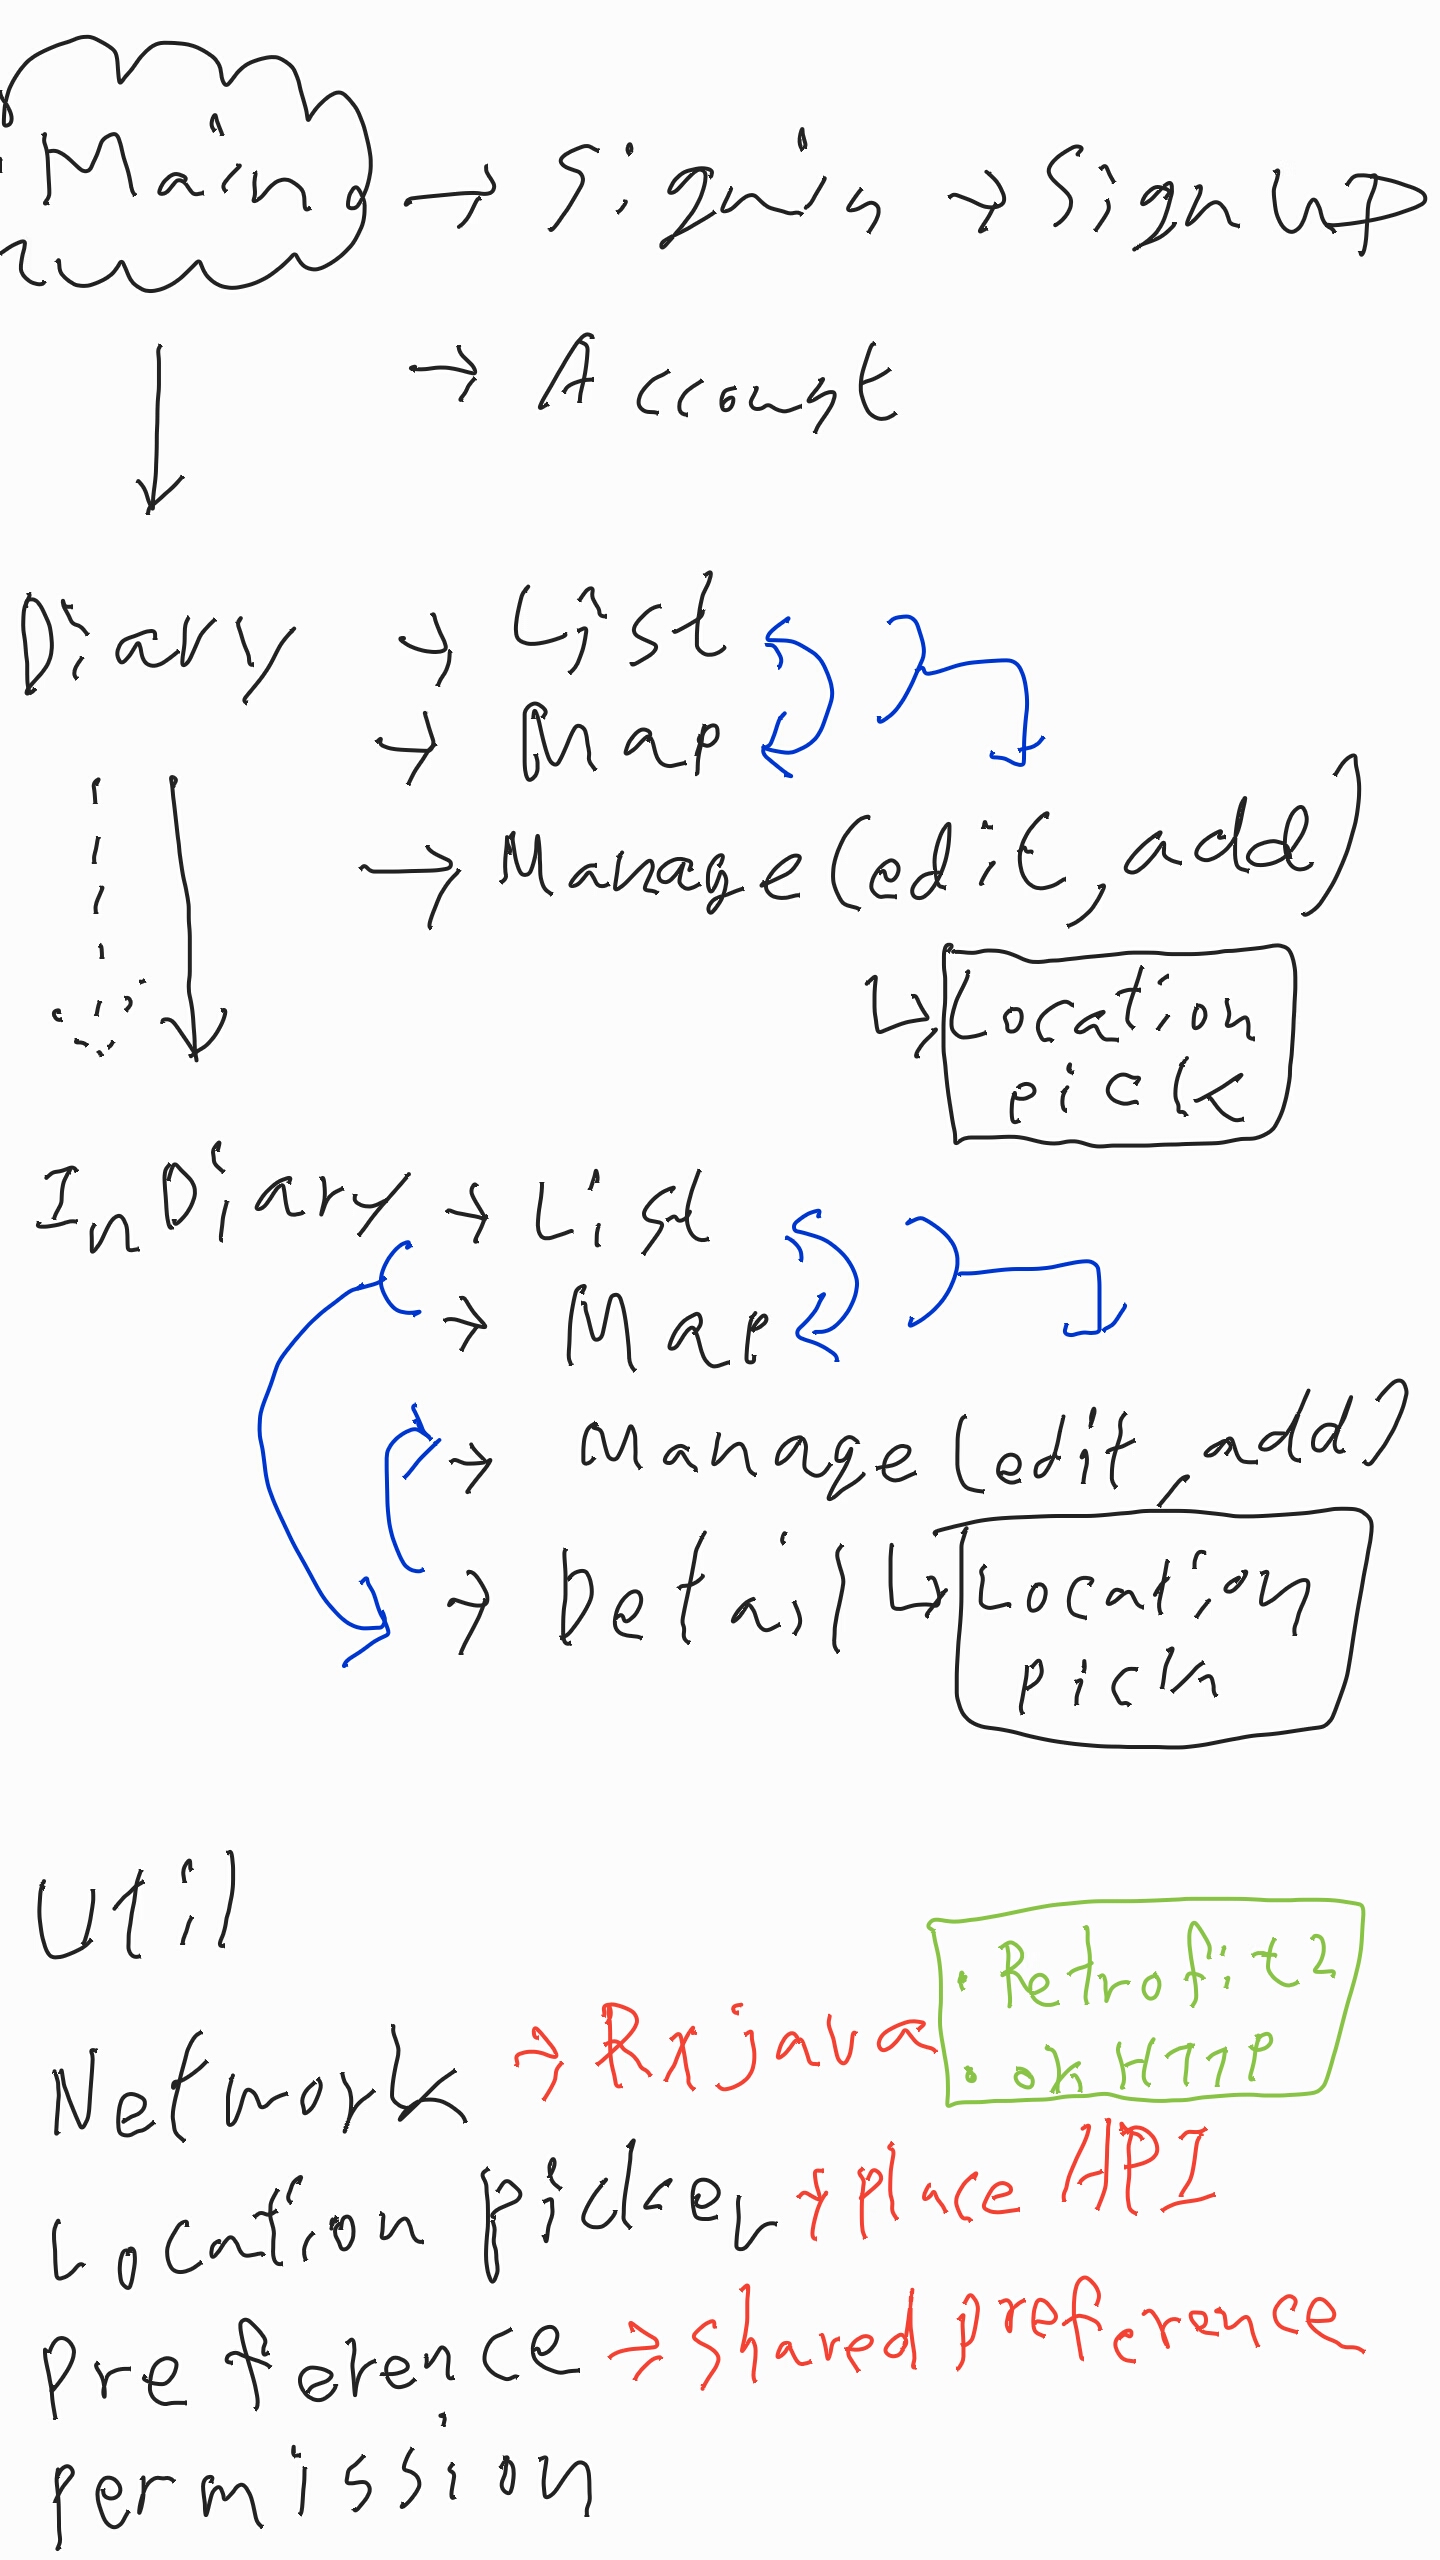 Main → Signin → Sign up
→ Account
Diary → List
→ Map
→ Manage (edit, add)
↳ Location
pick
In Diary → List
→ Map
→ Manage (edit, add)
→ Detail ↳ Location
pick
Util
· Retrofit2
Network → Rxjava · ok HTTP
Location picker → place API
preference → shared preference
permission